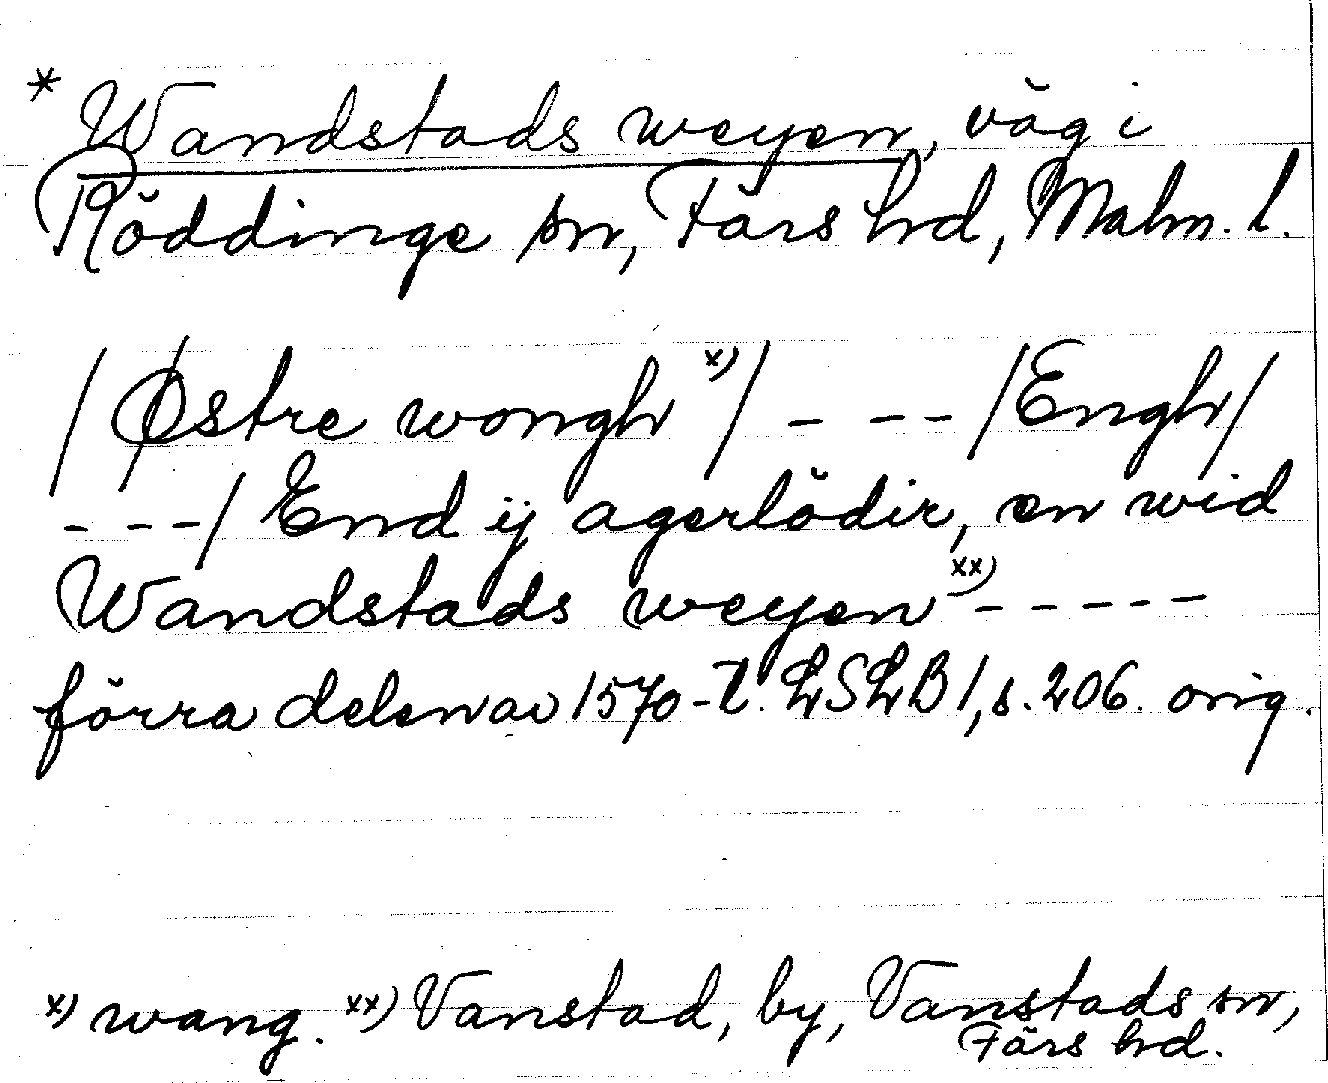 * Wandstads weyen, väg i
Röddinge sn, Färs hd, Malm. l.
/Østre wongh x)/ - - - /Engh/
- - - / End ij agerlödir, en wid
Wandstads weyen xx) - - - - -
förra delen av 1570-t. LSLB 1, s. 206. orig.
x) wang. xx) Vanstad, by, Vanstads sn,
Färs hd.